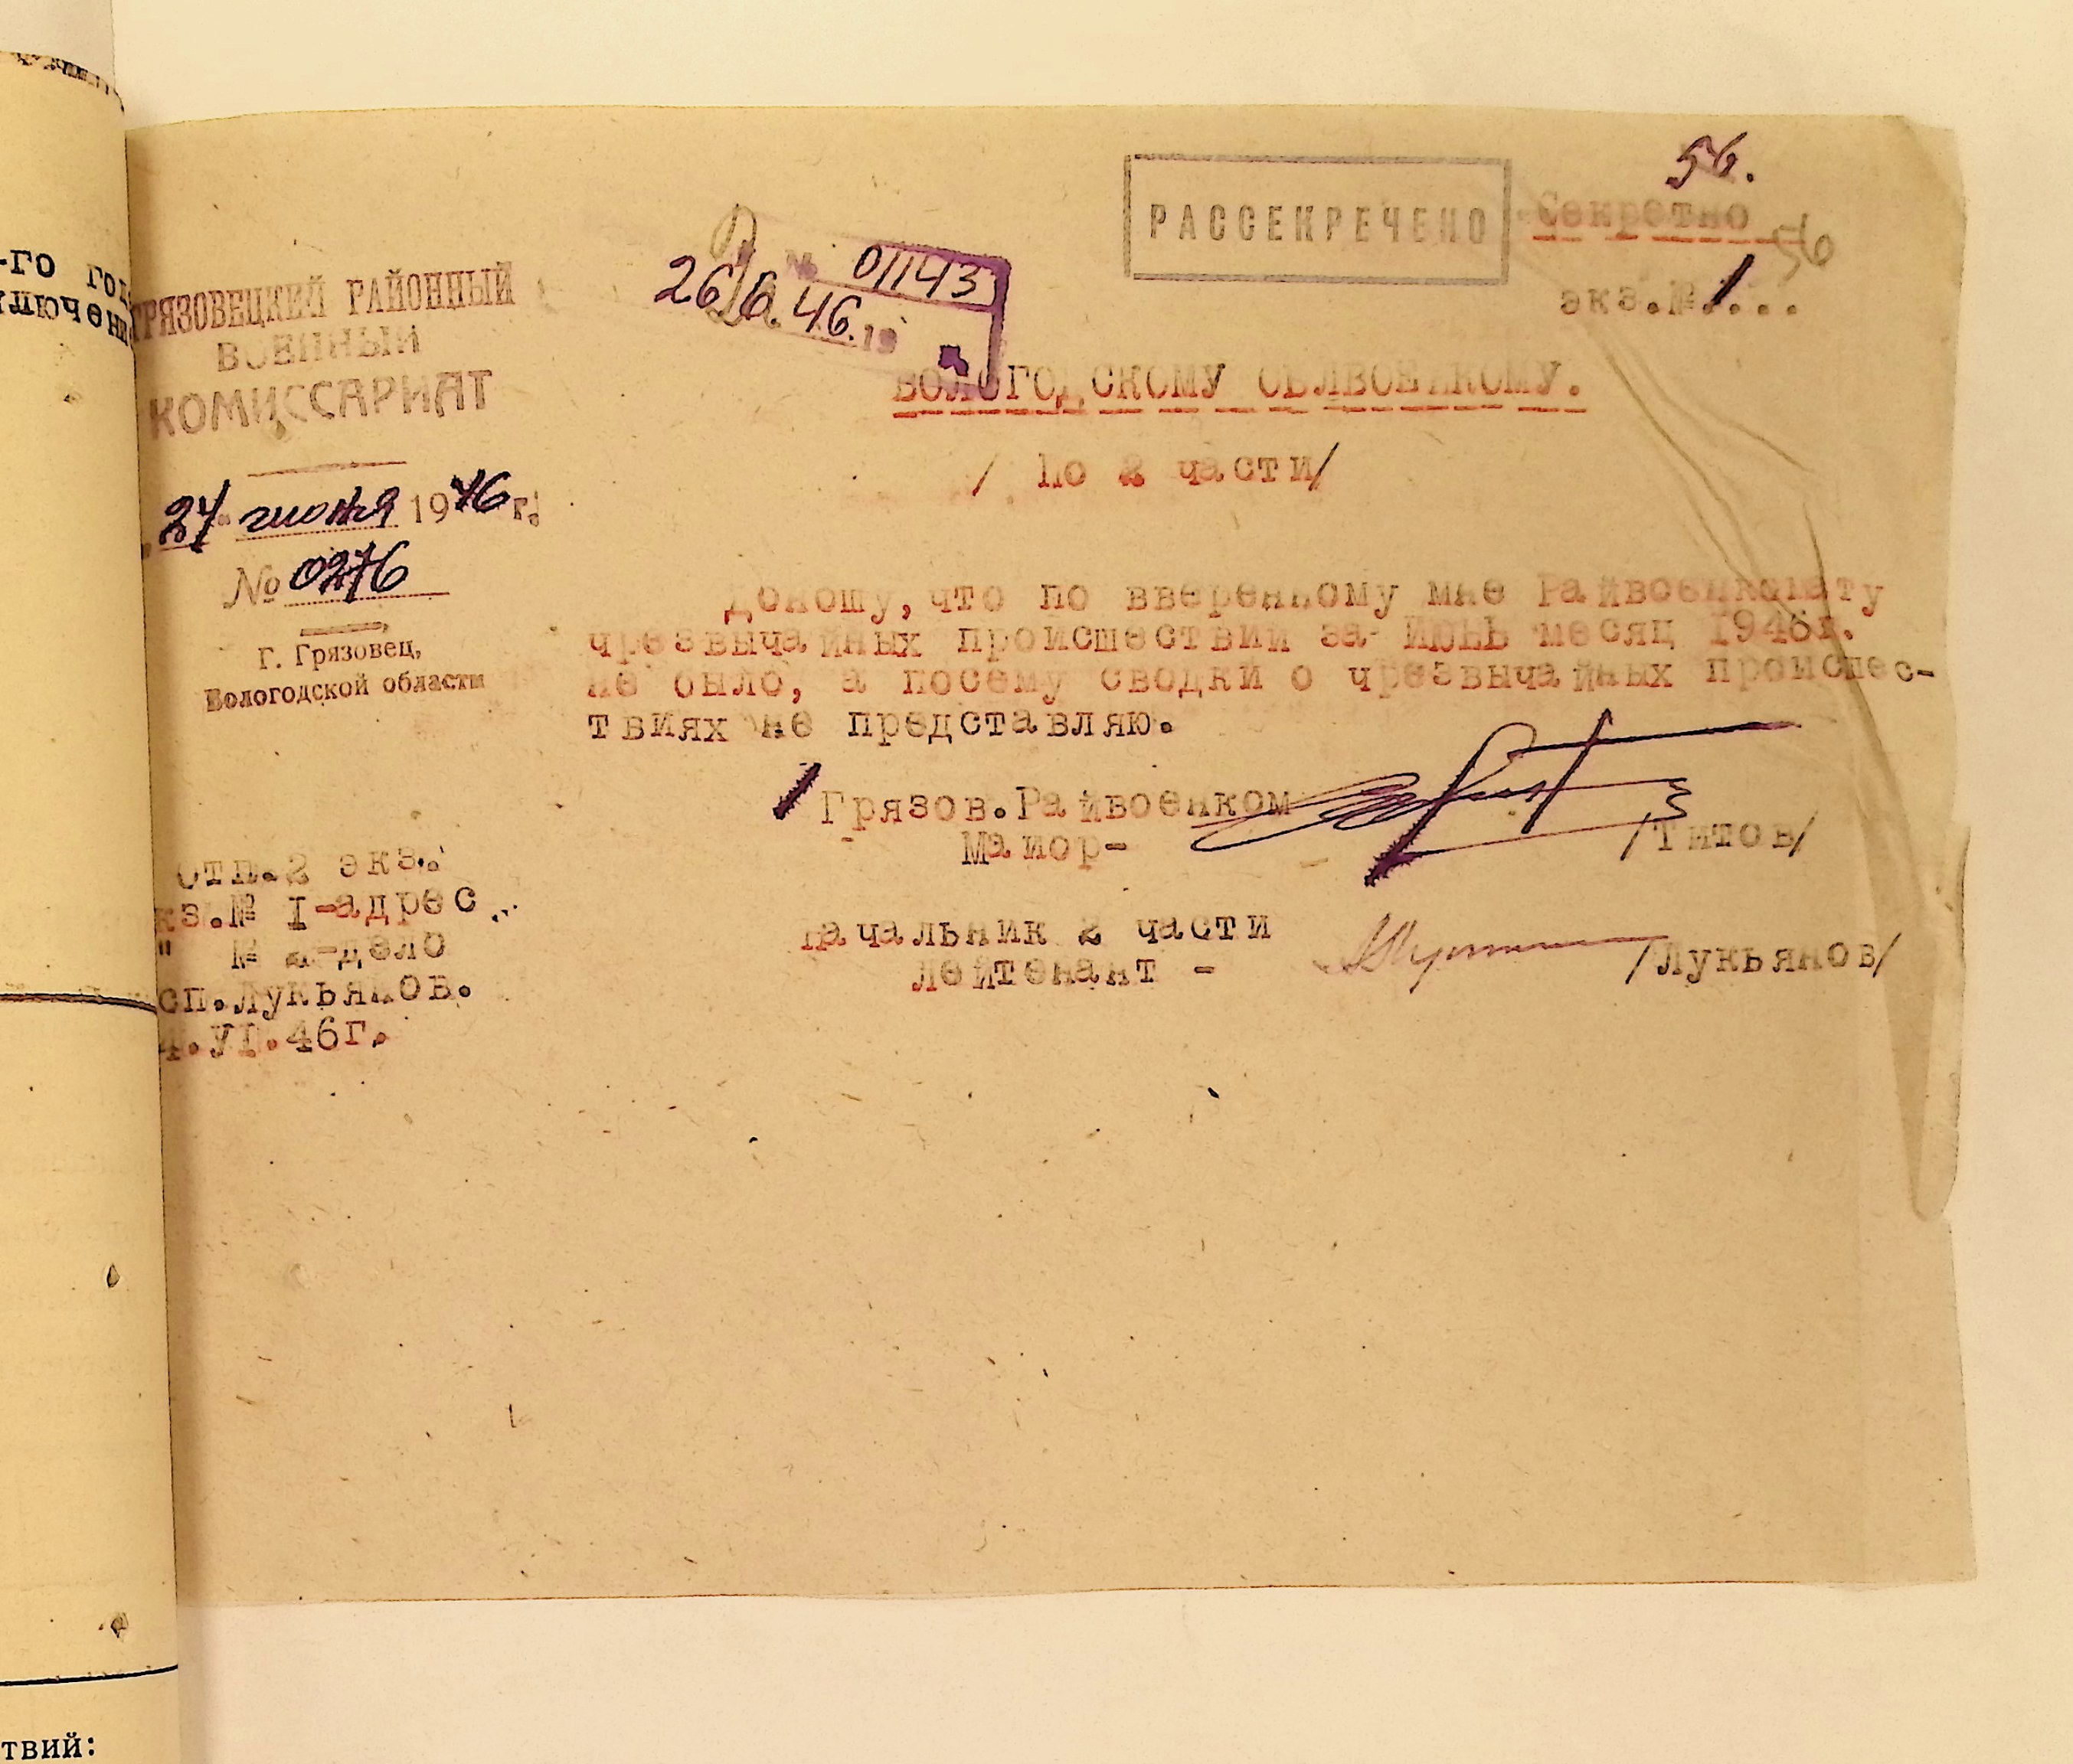 56.
РАССЕКРЕЧЕНО
Секретно
56
экз.№ 1...
№ 01143
26/6. 46. 19
ГРЯЗОВЕЦКИЙ РАЙОННЫЙ
ВОЕННЫЙ
КОМИССАРИАТ
24 июня 1946 г.
№ 0276
Г. Грязовец,
Вологодской области
ВОЛОГОДСКОМУ ОБЛВОЕНКОМУ.
/ По 2 части/
Доношу, что по вверенному мне Райвоенкомату
чрезвычайных происшествий за июнь месяц 1946г.
не было, а посему сводки о чрезвычайных происшес-
твиях не представляю.
Грязов.Райвоенком
Майор-
/Титов/
Начальник 2 части
Лейтенант -
/Лукьянов/
Отп.2 экз.
кз.№ I-адрес
" № 2-дело
сп.Лукьянов.
4.УI.46г.
-го год
твий: